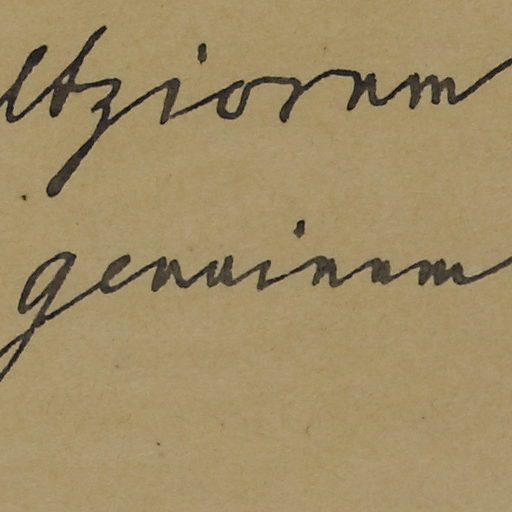 ltziorum
genuinum